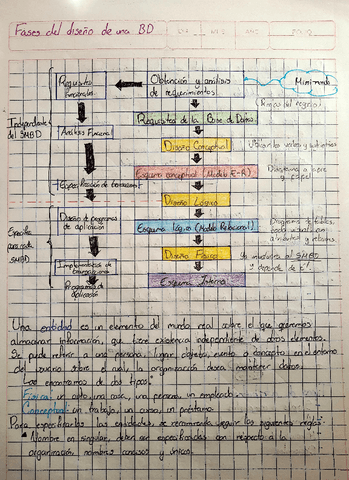 Fases del diseño de una BD
Requisitos funcionales
Obtención y análisis de requerimientos
Minimundo
(Reglas del negocio)
Independiente del SMBD
Requisitos de la Base de Datos
Análisis Funcional
Diseño Conceptual
Esquema conceptual (Modelo E-R)
Diagrama a lápiz y papel
Especificación de transacciones
Diseño Lógico
Específico para cada SMBD
Diseño de programas de aplicación
Esquema Lógico (Modelo Relacional)
Diseño Físico
Implementación de transacciones
Programas de aplicación
Esquema Interno
Una entidad es un elemento del mundo real sobre el que queremos
almacenar información, que tiene existencia independiente de otros elementos.
Se puede referir a una persona, lugar, objeto, evento o concepto en el entorno
del usuario sobre el cual la organización desea mantener datos.
Las encontramos de dos tipos:
Física: un auto, una casa, una persona, un empleado.
Conceptual: un trabajo, un curso, un préstamo.
Para especificarlas las entidades, se recomienda seguir las siguientes reglas:
Nombre en singular, deben ser especificadas con respecto a la
organización, nombres concisos y únicos.